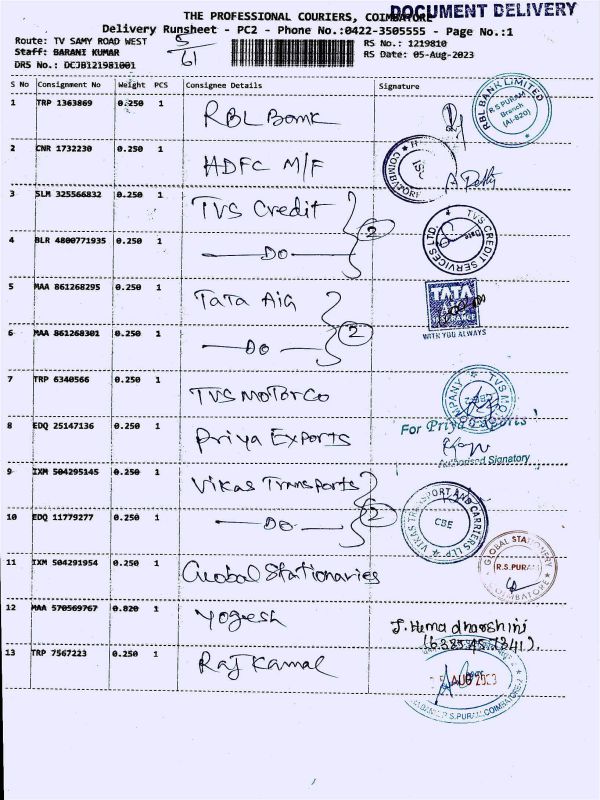 THE PROFESSIONAL COURIERS, COIMBATORE
DOCUMENT DELIVERY
Delivery Runsheet - PC2 - Phone No.:0422-3505555 - Page No.:1
Route: TV SAMY ROAD WEST
RS No.: 1219810
Staff: BARANI KUMAR
RS Date: 05-Aug-2023
DRS No.: DCJB121981001
5/61
S No Consignment No Weight PCS Consignee Details Signature
1 TRP 1363869 0.250 1 RBL Bank
RBL BANK LIMITED R.S PURAM Branch (AI-820)
2 CNR 1732230 0.250 1 HDFC M/F
COIMBATORE
3 SLM 325566832 0.250 1 TVS Credit
2
TVS CREDIT SERVICES LTD. Date
4 BLR 4800771935 0.250 1 DO
5 MAA 861268295 0.250 1 Tata AIG
TATA AIG INSURANCE
WITH YOU ALWAYS
6 MAA 861268301 0.250 1 DO
2
7 TRP 6340566 0.250 1 TVS MOTOR CO
TVS MOTOR COMPANY CBE-2
8 EDQ 25147136 0.250 1 Priya Exports
For Priya Exports
Authorised Signatory
9 IXM 504295145 0.250 1 Vikas Transports
VIKAS TRANSPORT AND CARRIERS LLP CBE
10 EDQ 11779277 0.250 1 DO
2
11 IXM 504291954 0.250 1 Global Stationaries
GLOBAL STATIONERY R.S.PURAM COIMBATORE
12 MAA 570569767 0.820 1 Yogesh
J. Hema dharshini
(6385457341).
13 TRP 7567223 0.250 1 Raj Kamal
5 AUG 2023
R.S.PURAM, COIMBATORE-2